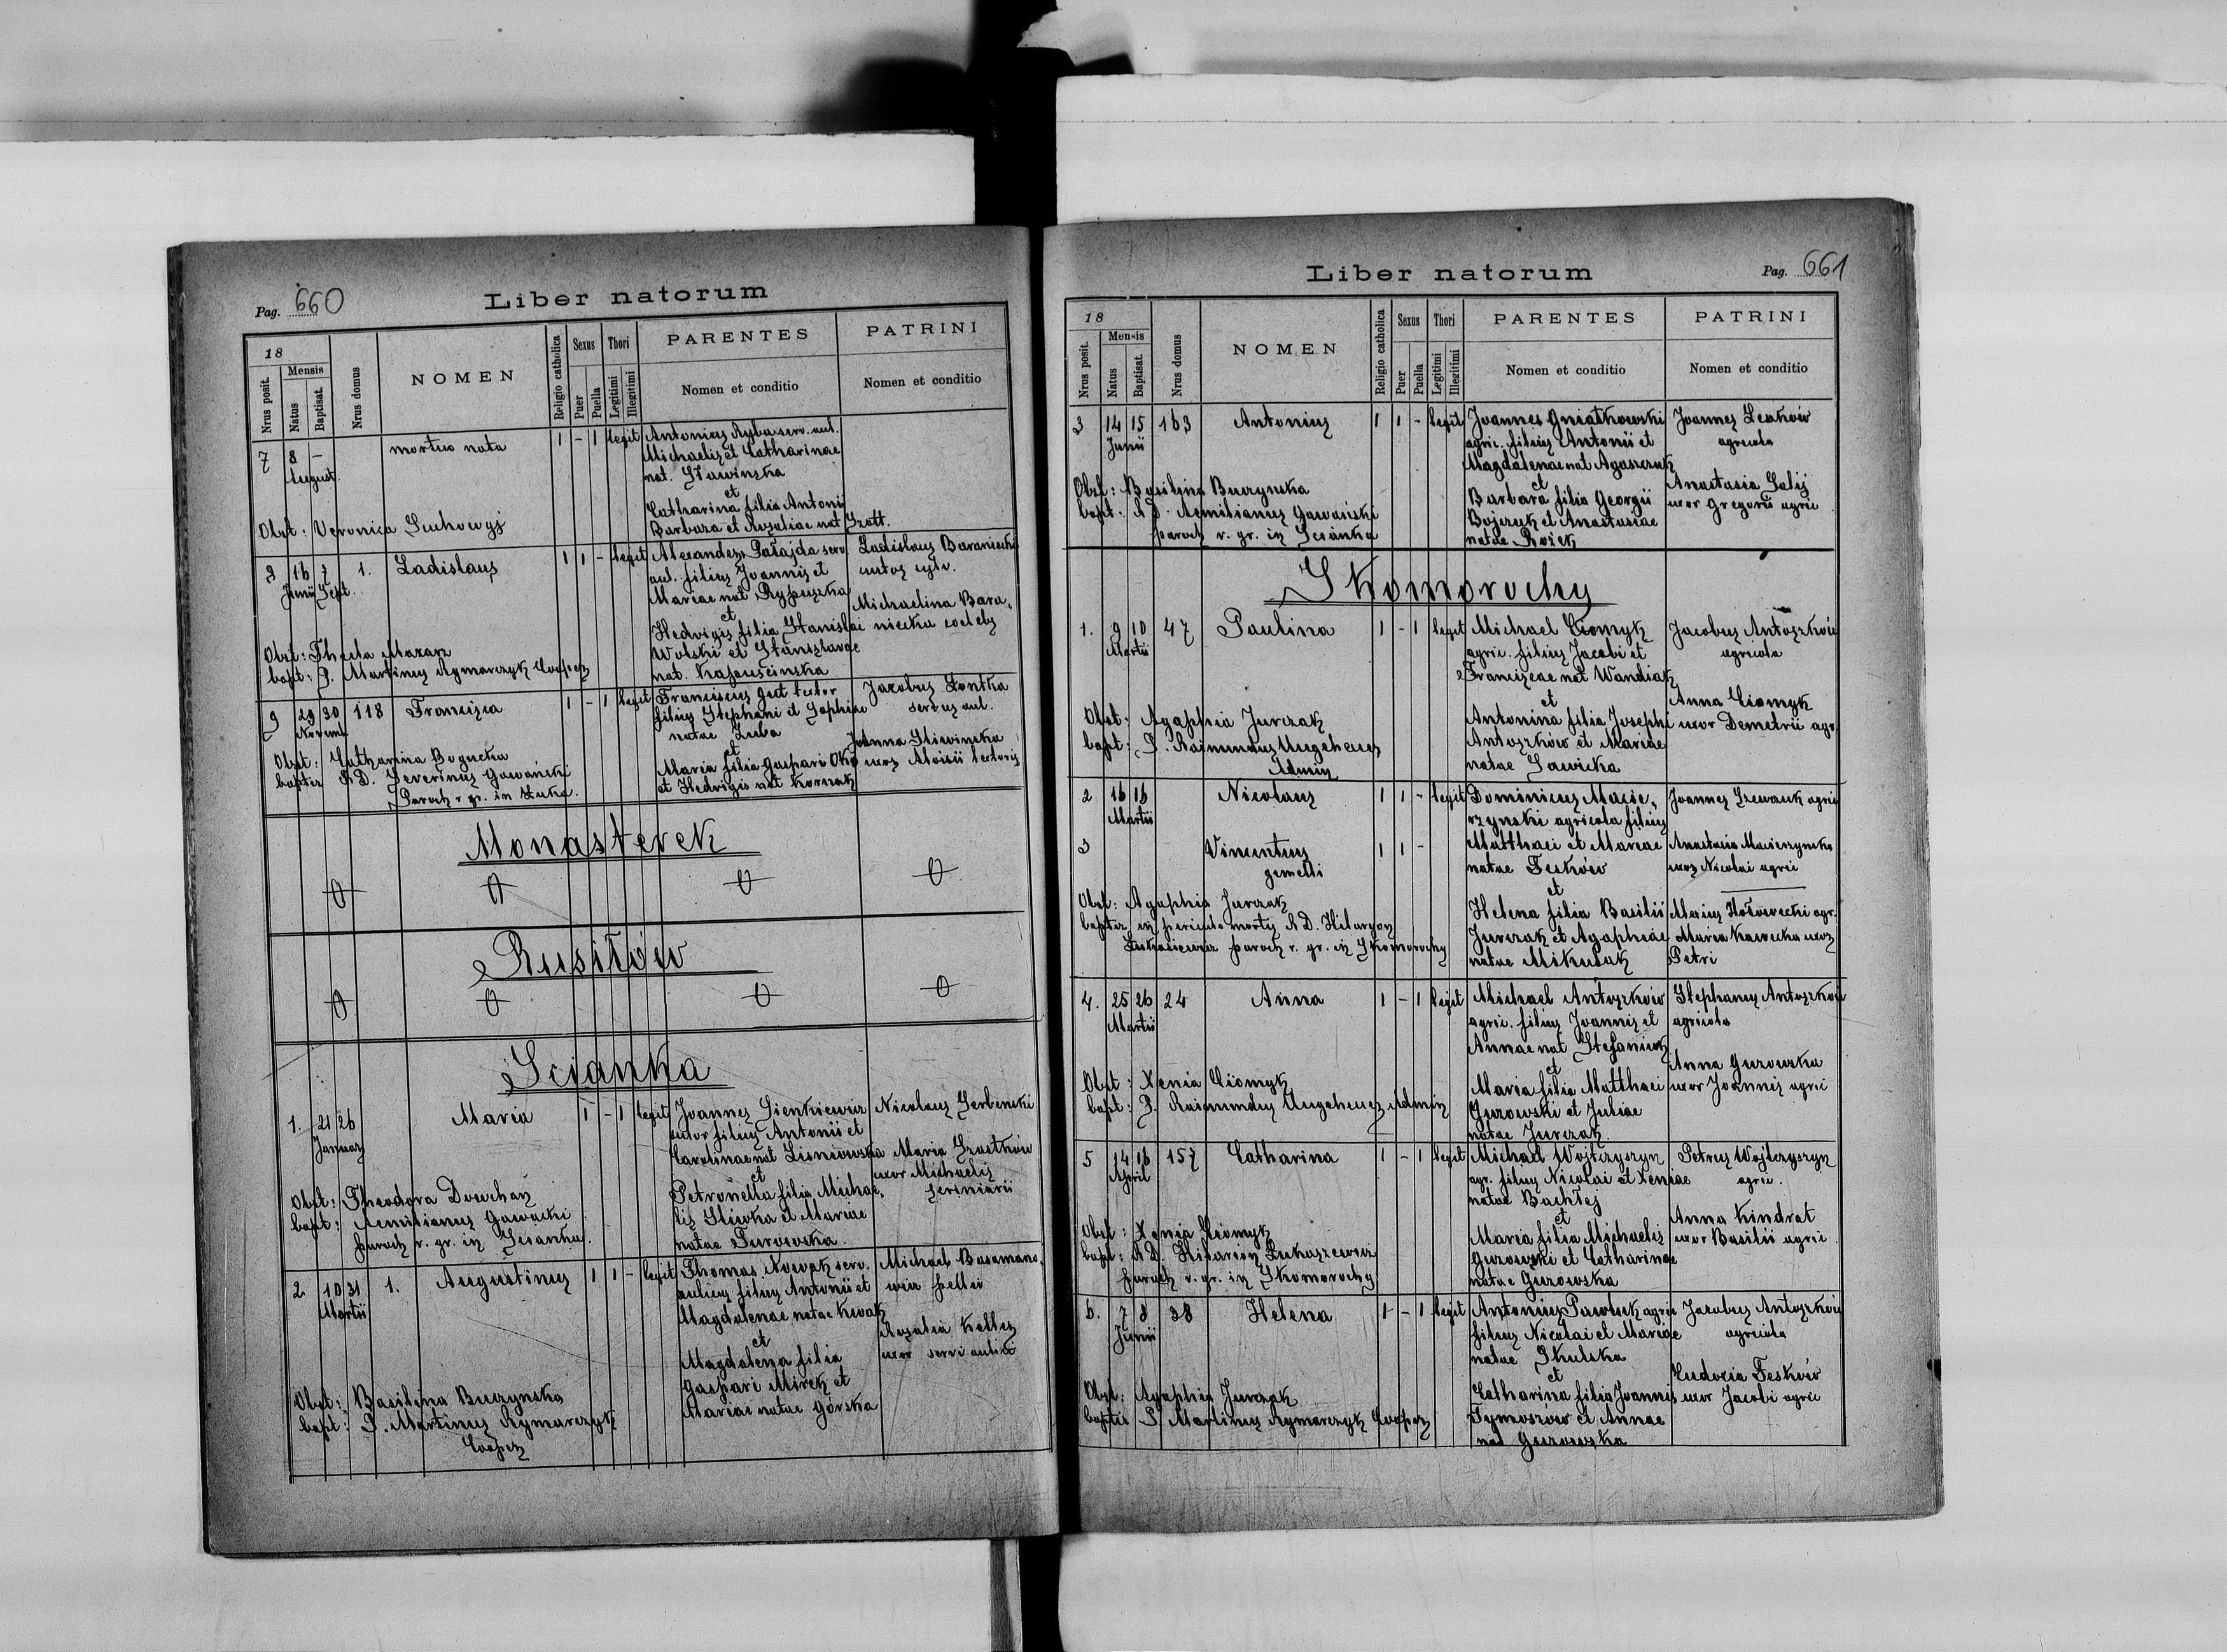 Pag. 660
Liber natorum
18
Nrus posit.
Mensis
Natus
Baptisat.
Nrus domus
NOMEN
Religio catholica
Sexus
Puer
Puella
Thori
Legitimi
Illegitimi
PARENTES
Nomen et conditio
PATRINI
Nomen et conditio
7 8 – mortuo nata 1 – 1 legit Antonius Ryba serv. aul.
August
Michaelis et Catharinae
nat. Sławinska
et
Catharina filia Antoni
Barbara et Rosaliae nat
Obst: Veronica
16 7 1. Ladislaus 1 1 – legit Alexander Pałajda serv.
Junii Sept.
aul. filius Joannis et
Mariae nat
et
Hedvigis filia Stanislai
Wolski et Stanislavae
nat. Kapuścinska
Ladislaus Baraniecki
Michaelina Bara
niecka coelebs
Obst: Thecla Mazarz
bapt: P. Martinus Rymarczyk Cooper
9 29 30 118 Francisca 1 – 1 legit Franciscus Gut tector
Novemb
filius Stephani et Sophiae
natae
et
Maria filia Gaspari
et Hedvigis nat Kornak
Jacobus Lontka
servus aul.
Joanna Sliwinska
uxor Aloisii tectoris
Obst: Catharina Bogucka
baptiz R D. Severinus Gawański
Paroch r. gr. in Łuka.
Monasterek
0 0 0 0
Rusiłów
0 0 0 0
Scianka
1. 21 26 Maria 1 – 1 legit Joannes Sienkiewicz
Januar
sutor filius Antonii et
Carolinae nat Lisniowska
et
Petronella filia Michae,
lis Sliwka et Mariae
natae Turowska.
Nicolaus Serbenski
Maria
uxor Michaelis
scriniarii
Obst: Theodora Dowhan
bapt: Aemilianus Gawański
paroch r. gr. in Scianka.
2. 10 31 1. Augustinus 1 1 – legit Thomas Nowak serv.
Martii
aulicus filius Antonii et
Magdalenae natae Kwak
et
Magdalena filia
Gaspari Mirek et
Mariae natae Górska
Michael
Rosalia Keller
uxor servi aulici
Obst: Basilina Buczynska
bapt: P. Martinus Rymarczyk
Cooper
Liber natorum
Pag. 661
18
Nrus posit.
Mensis
Natus
Baptisat.
Nrus domus
NOMEN
Religio catholica
Sexus
Puer
Puella
Thori
Legitimi
Illegitimi
PARENTES
Nomen et conditio
PATRINI
Nomen et conditio
3 14 15 163 Antonius 1 1 – legit Joannes Gniatkowski
Junii
agric. filius Antonii et
Magdalenae nat Agaszczuk
et
Barbara filia Georgii
Bojczuk et Anastasiae
natae Rożek
Joannes Leskow
agricola
Anastasia
uxor Gregorii agric
Obst: Basilina Buczynska
bapt: R D. Aemilianus Gawański
paroch r. gr. in Scianka
Skomorochy
1. 9 10 47 Paulina 1 – 1 legit Michael Ciomyk
Martii
agric. filius Jacobi et
Franciscae nat Wandiak
et
Antonina filia Josephi
Antoszków et Mariae
natae Sawicka
Jacobus Antoszków
agricola
Anna Ciomyk
uxor Demetrii agr.
Obst: Agaphia Jurczak
bapt: P. Raimundus Ungeheuer
Admin
2 16 16 Nicolaus 1 1 – legit Dominicus Macie,
Martii
rzynski agricola filius
3 Vincentius 1 1 –
gemelli
Matthaei et Mariae
natae Feśków
et
Helena filia Basilii
Jurczak et Agaphiae
natae Mikulak
Joannes agric
Anastasia Macierzynska
uxor Nicolai agric
Alexius agr.
Maria Kawecka uxor
Petri
Obst: Agaphia Jurczak
baptiz in periculo mortis R D. Hilaryon
Łukasiewicz paroch r. gr. in Skomorochy
4. 25 26 24 Anna 1 – 1 legit Michael Antoszków
Martii
agric. filius Joannis et
Annae nat Stefaniuk
et
Maria filia Matthaei
Guzowski et Juliae
natae Jurczak.
Stephanus Antoszków
agricola
Anna Guzowska
uxor Joannis agric
Obst: Xenia Ciomyk
bapt: P. Raimundus Ungeheuer Admin
5 14 16 157 Catharina 1 – 1 legit Michael Wojtczyszyn
April
agr. filius Nicolai et Xeniae
natae
et
Maria filia Michaelis
Guzowski et Catharinae
natae Guzowska
Petrus Wojtczyszyn
agric.
Anna Kindrat
uxor Basilii agric
Obst: Xenia Ciomyk
bapt: R D. Hilarion Łukaszewicz
paroch r. gr. in Skomorochy
6. 7 8 38 Helena 1 – 1 legit Antonius Pawluk agric
Junii
filius Nicolai et Mariae
natae Skulska
et
Catharina filia Joannis
Tymoszów et Annae
nat Guzowska
Jacobus Antoszków
agricola
Eudocia Feśków
uxor Jacobi agric
Obst: Agaphia Jurczak
baptis P. Martinus Rymarczyk Cooper